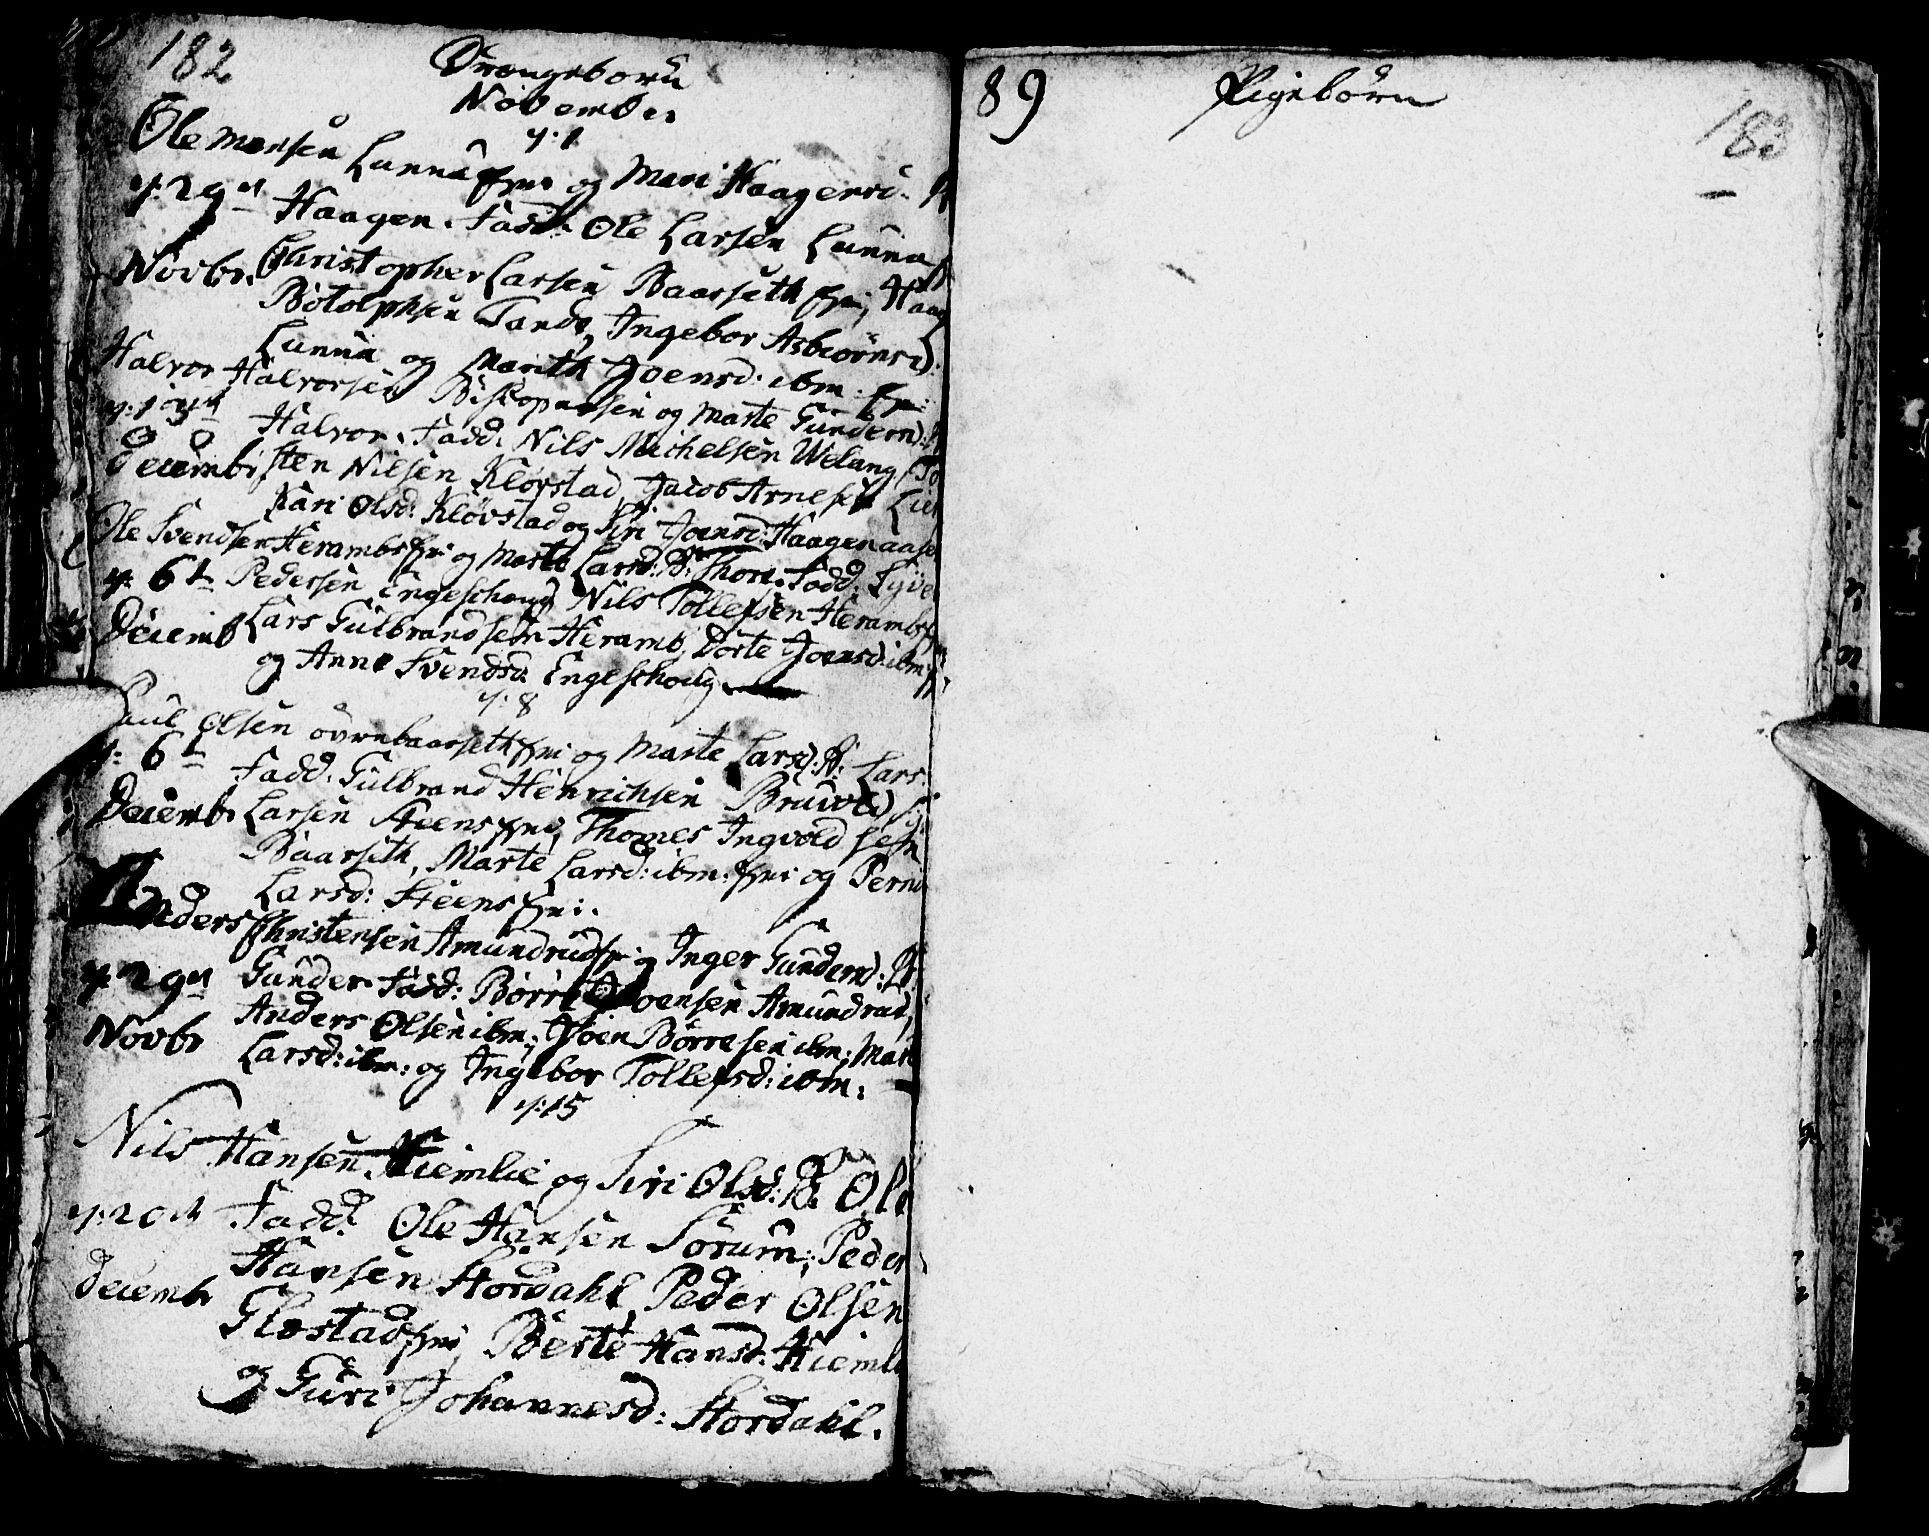 182
Drængebørn
November
Ole Monsen Lunnaejer og Mari Haagensd:
d: 1
d: 29de Haagen. Fadd: Ole Larsen Lunna
Novbr. Christopher Larsen Baarseth Ejer, Haag
Botolphsen Tande, Ingebor Asbiørnsd.
Lunna og Marith Joensd: ibm:
Halvor Halvorsen Biskopaasen og Marte Gundersd:
Halvor. Fadd: Nils Michelsen Welang
Decembr. sten Nilsen Kløvstad, Jacob Arnesen Lie
Kari Olsd: Kløvstad og Siri Joensd: Haagenaasen
Ole Svendsen Herambs Ejer og Marte Larsd: B: Thore. Fadd: Syve
d: 6t Pedersen Engeschoug Nils Tollefsen Herambs
Decemb Lars Gulbrandsen Heramb, Dorte Joensd: ibm:
og Anne Svendsd: Engeschoug
d: 8
Paul Olsen øvrebaarseth Ejer og Marte Larsd: B: Lars.
d: 6t Fadd: Gulbrand Henrichsen Bruvold
Decembr Larsen Steens Ejer, Thomes Ingvoldsen
Baarseth, Marte Larsd: ibm: Ejer og Perni
Larsd: Steens Ejer.
Anders Christensen Amundrud Ejer og Inger Gundersd: B.
d: 29de Gunder. Fadd: Børre Joensen Amundrud,
Anders Olsen ibm; Joen Børresen ibm; Mar
Novbr Larsd: ibm: og Ingebor Tollefsd: ibm:
d: 15
Nils Hansen Hiemlie og Siri Olsd: B: Ole
d: 20de Fadd: Ole Hansen Sørum; Peder
Hansen Stordahl, Peder Olsen
Decembr Glostad Ejer, Berte Hansd: Hiemli
og Guri Johannesd: Stordahl.
89
Pigebørn
183